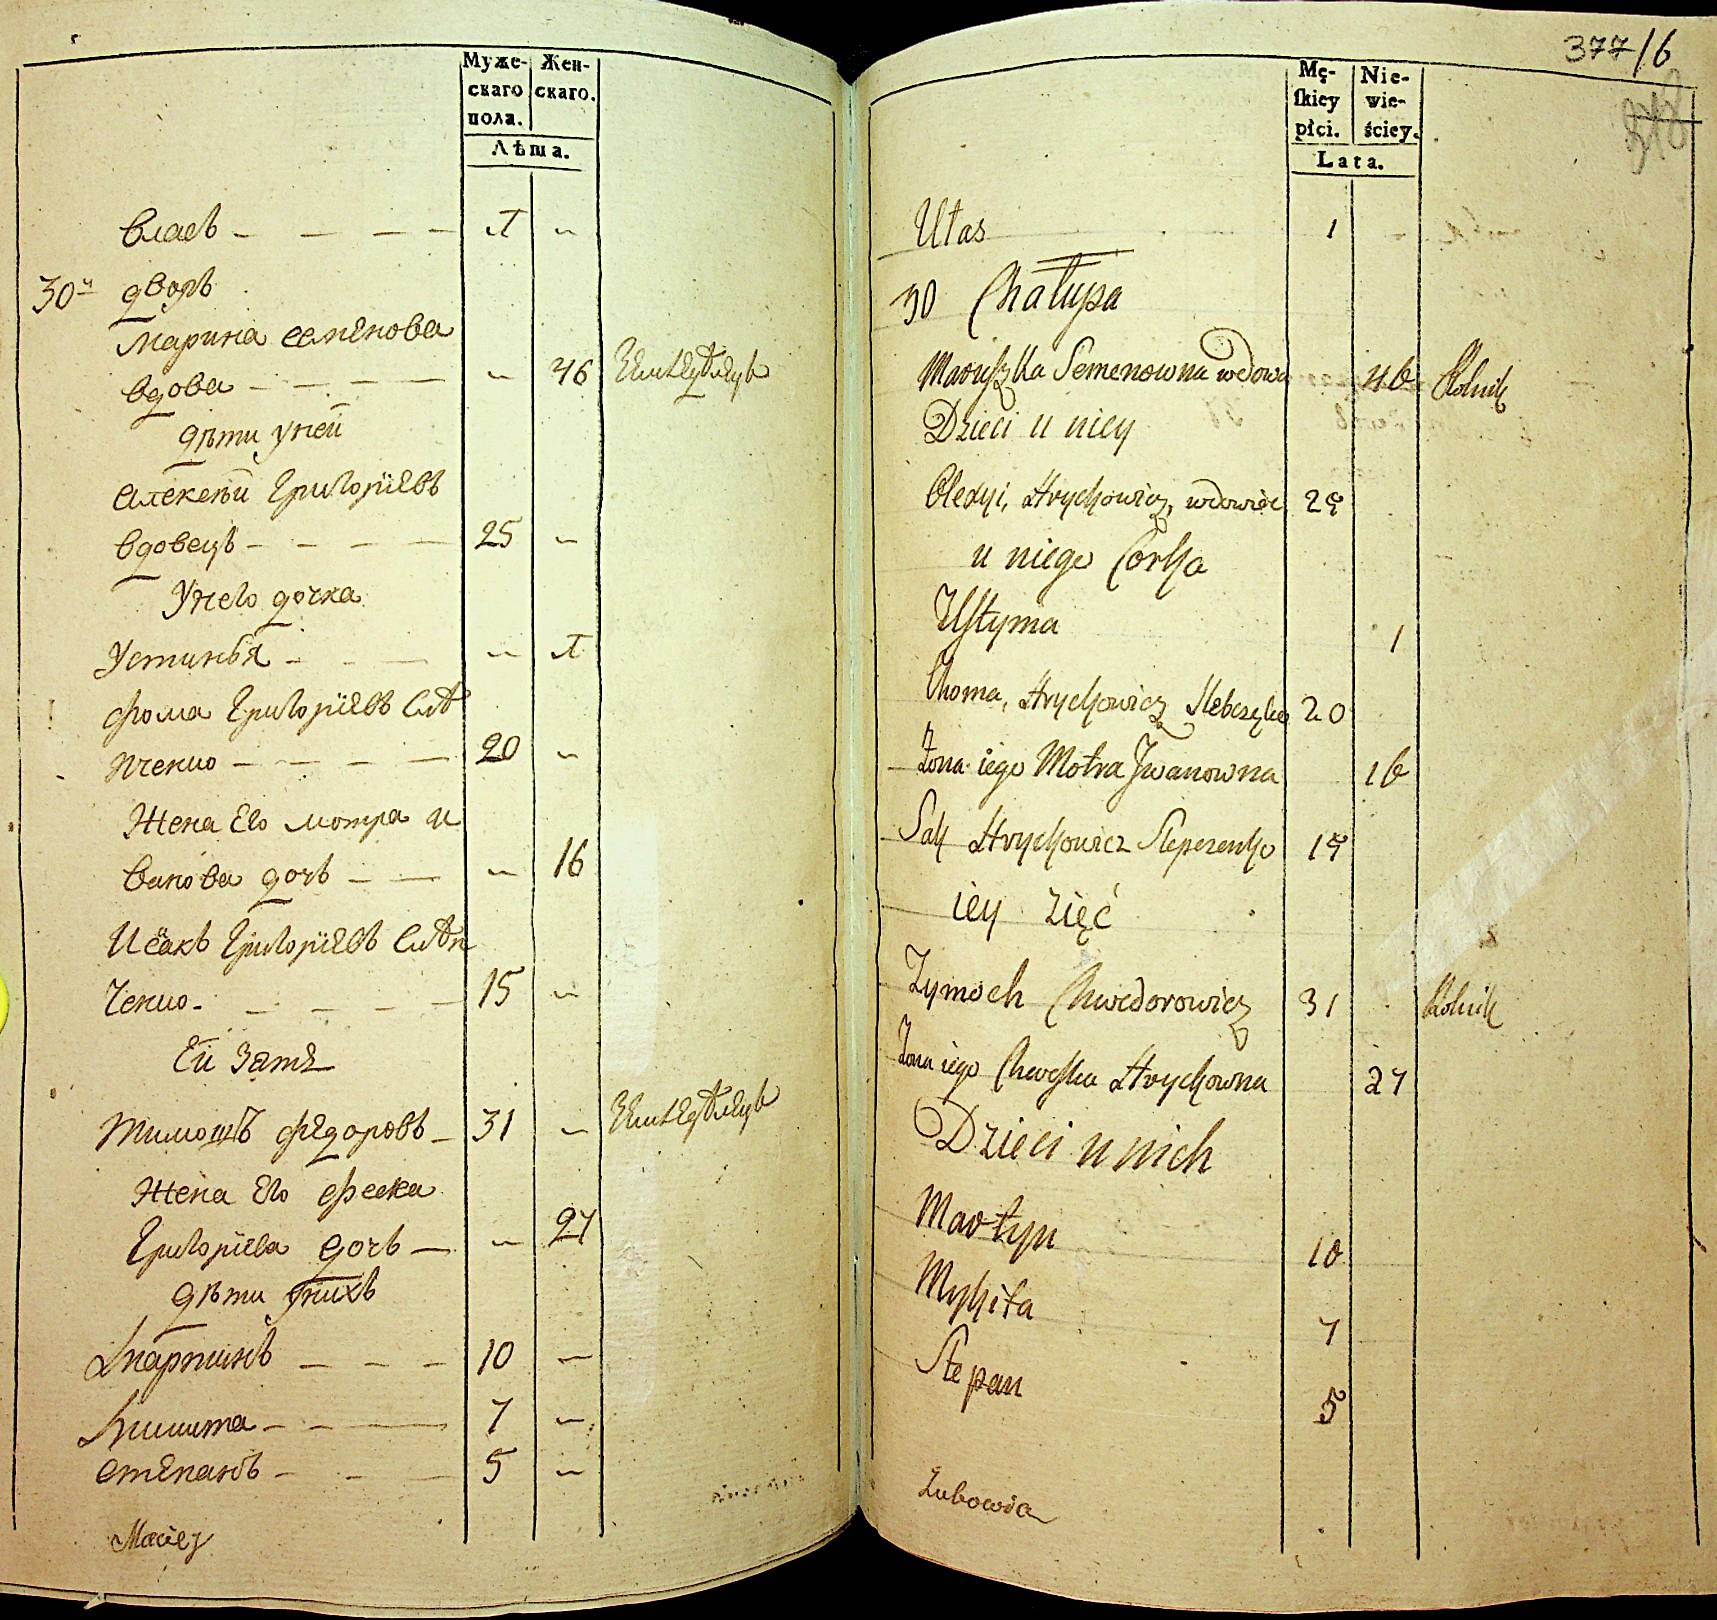 Муже-
скаго
пола.
Жен-
скаго.
Лѣта.
Власъ 1
30й дворъ
Марина Семенова
вдова 46 Земледѣлецъ
дѣти у ней
Алексѣй Григоріевъ
вдовецъ 25
У него дочка
Устинья 1
Фома Григоріевъ Слѣ
пченко 20
Жена Его мотра И
ванова дочь 16
Исакъ Григоріевъ Слѣп
ченко 15
Ей Зять
Тимошъ Федоровъ 31 Земледѣлецъ
Жена Его Феска
Григоріева дочь 27
дѣти у нихъ
Мартинъ 10
Микита 7
Степанъ 5
Maciey
377/6
Mę-
ſkiey
płci.
Nie-
wie-
ściey.
Lata.
Ułas 1
30 Chałupa
Maruszka Semenowna wdowa 46 Rolnik
Dzieci u niey
Olexyi, Hryhowicz, wdowiec 25
u niego Corka
Uſtyma 1
Choma, Hryhowicz Slebczenko 20
Żona iego Motra Jwanowna 16
Sak Hryhowicz Slepczenko 15
iey zięć
Tymoch Chwedorowicz 31 Rolnik
Żona iego Chweſka Hryhowna 27
Dzieci u nich
Martyn 10
Mykita 7
Stepan 5